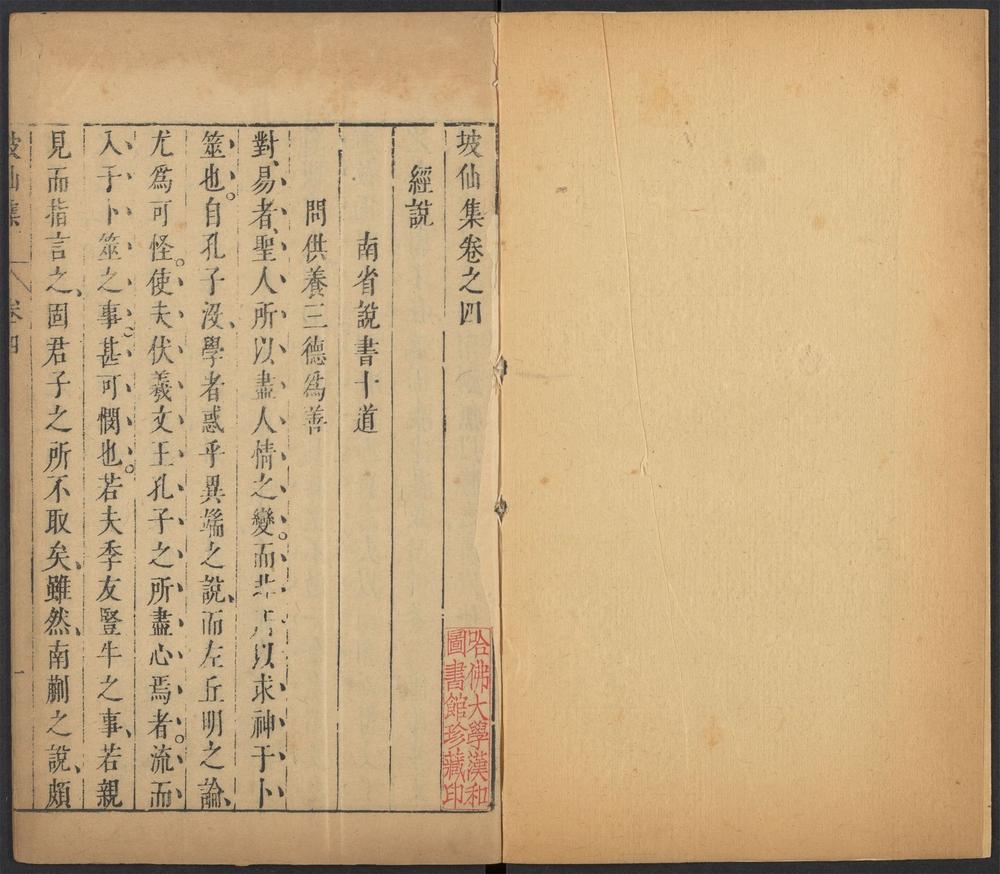 坡仙集卷之四
經說
南省說書十道
問供養三德爲善
對、易者、聖人所以盡人情之變。而非所以求神于卜
筮也。自孔子沒、學者惑乎異端之說、而左丘明之論、
尤爲可怪。使夫伏羲文王孔子之所盡心焉者。流而
入于卜筮之事。甚可憫也。若夫季友豎牛之事、若親
見而指言之、固君子之所不取矣、雖然、南蒯之說、頗
坡仙集 卷四 一
哈佛大學漢和
圖書館珍藏印